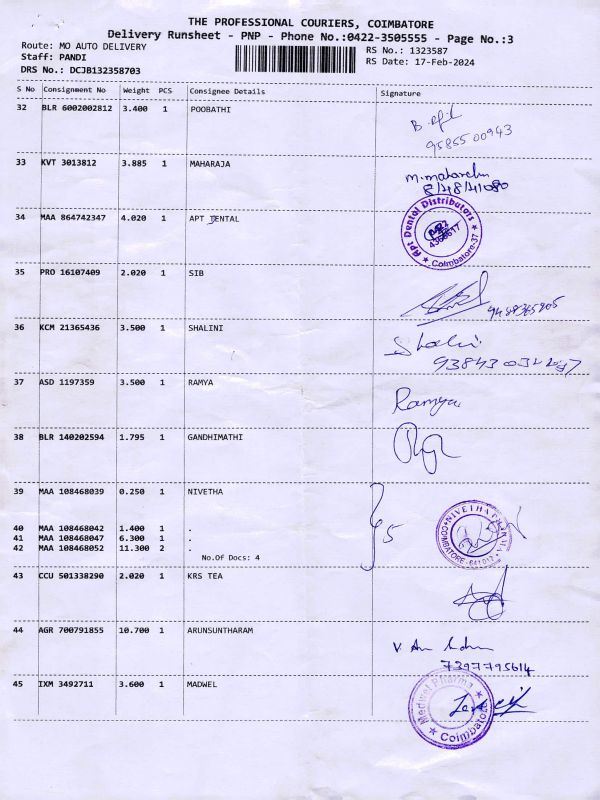 THE PROFESSIONAL COURIERS, COIMBATORE
Delivery Runsheet - PNP - Phone No.:0422-3505555 - Page No.:3
Route: MO AUTO DELIVERY RS No.: 1323587
Staff: PANDI RS Date: 17-Feb-2024
DRS No.: DCJB132358703
S No Consignment No Weight PCS Consignee Details Signature
32 BLR 6002002812 3.400 1 POOBATHI
9585500943
33 KVT 3013812 3.885 1 MAHARAJA
34 MAA 864742347 4.020 1 APT DENTAL Apt Dental Distributors Coimbatore-37
35 PRO 16107409 2.020 1 SIB
36 KCM 21365436 3.500 1 SHALINI Shalini
37 ASD 1197359 3.500 1 RAMYA Ramya
38 BLR 140202594 1.795 1 GANDHIMATHI
39 MAA 108468039 0.250 1 NIVETHA
40 MAA 108468042 1.400 1 . 5
41 MAA 108468047 6.300 1 .
42 MAA 108468052 11.300 2 . COIMBATORE
No.Of Docs: 4
43 CCU 501338290 2.020 1 KRS TEA
44 AGR 700791855 10.700 1 ARUNSUNTHARAM
7397795614
45 IXM 3492711 3.600 1 MADWEL Pharma Coimbatore